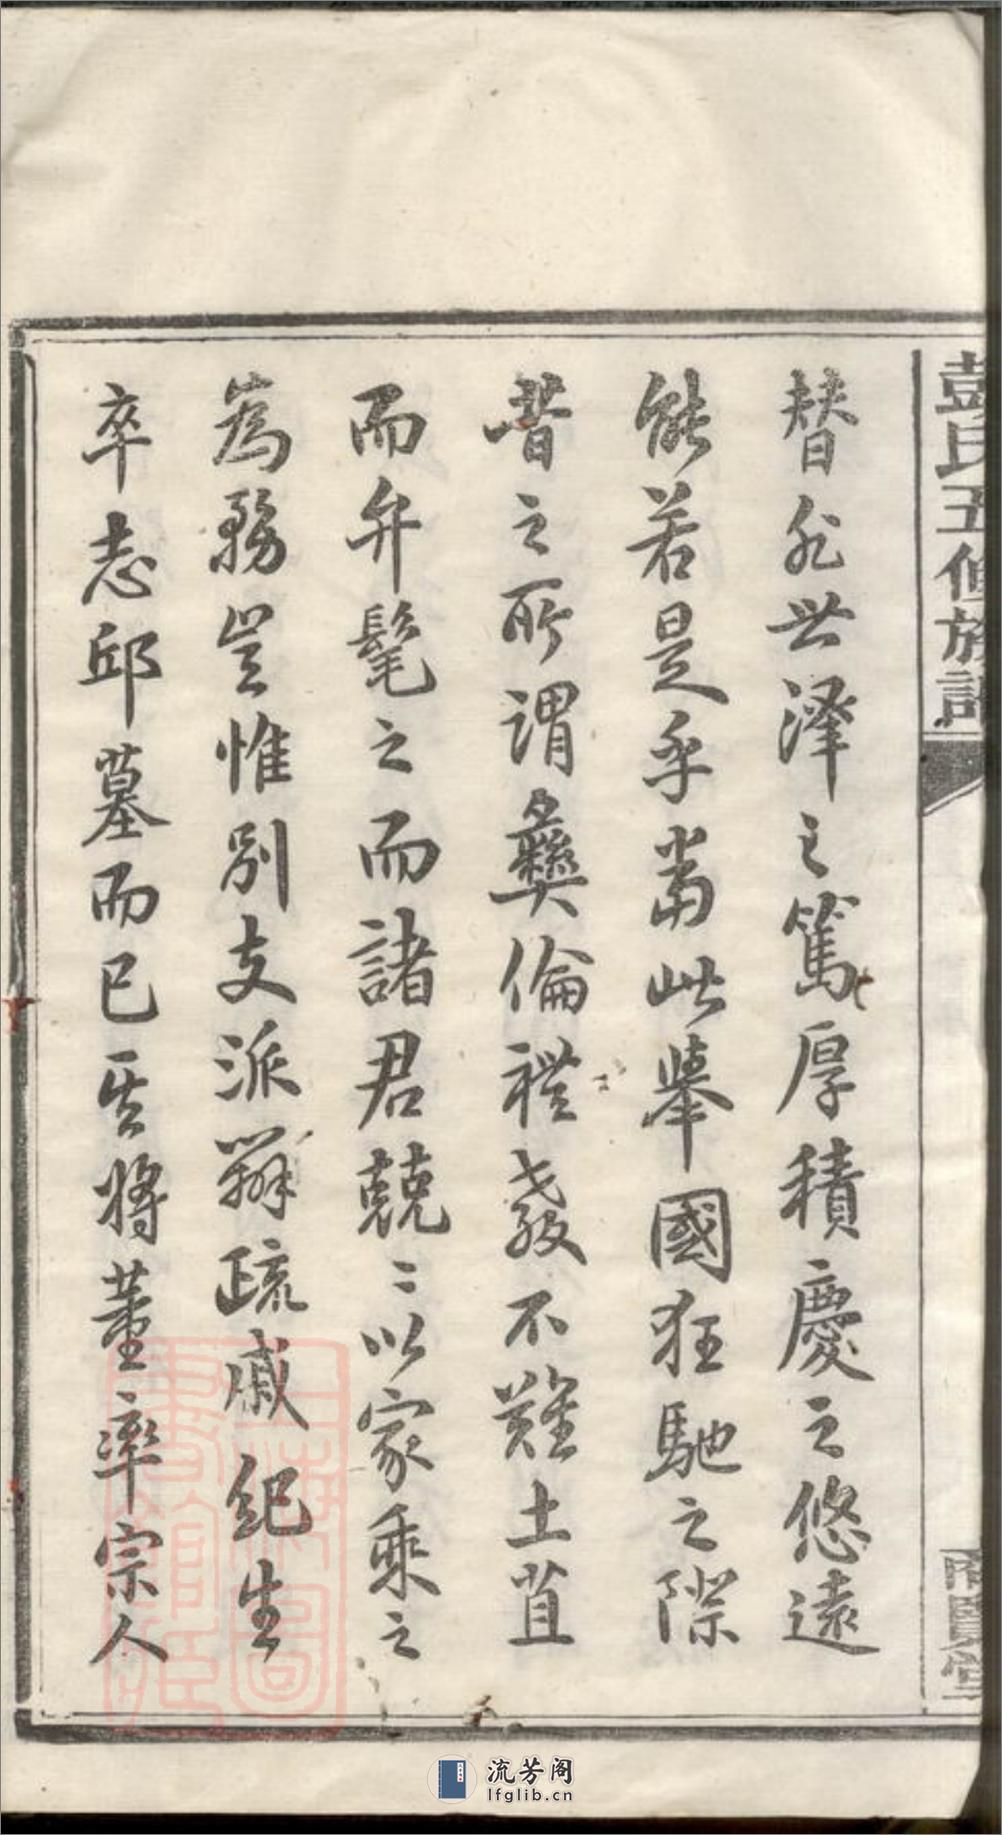 彭氏五修族譜
替非世澤之篤厚積慶之悠遠
能若是乎當此舉國狂馳之際
昔之所謂彝倫禮教不難土苴
而弁髦之而諸君兢〻以家乘之
為務豈惟別支派辨疏戚紀生
卒志邱墓而已其將董率宗人
兩賢堂
上海圖書館藏
流芳阁
lfglib.cn